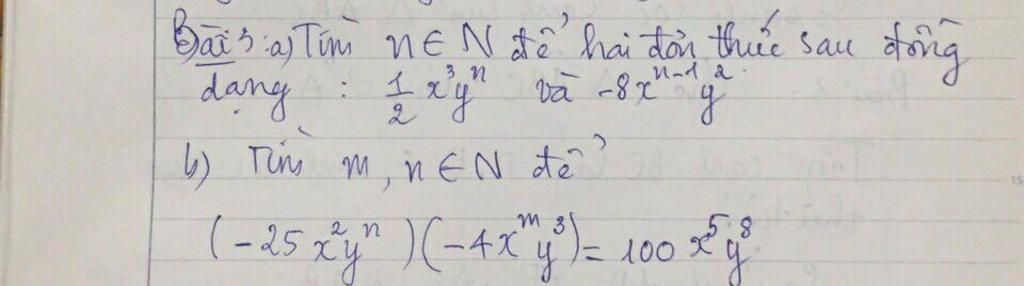 Bài 3: a) Tìm n ∈ N để hai đơn thức sau đồng
dạng : 1/2 x³yⁿ và -8xⁿ⁻¹y².
b) Tìm m, n ∈ N để
(-25x²yⁿ)(-4xᵐy³) = 100x⁵y⁸